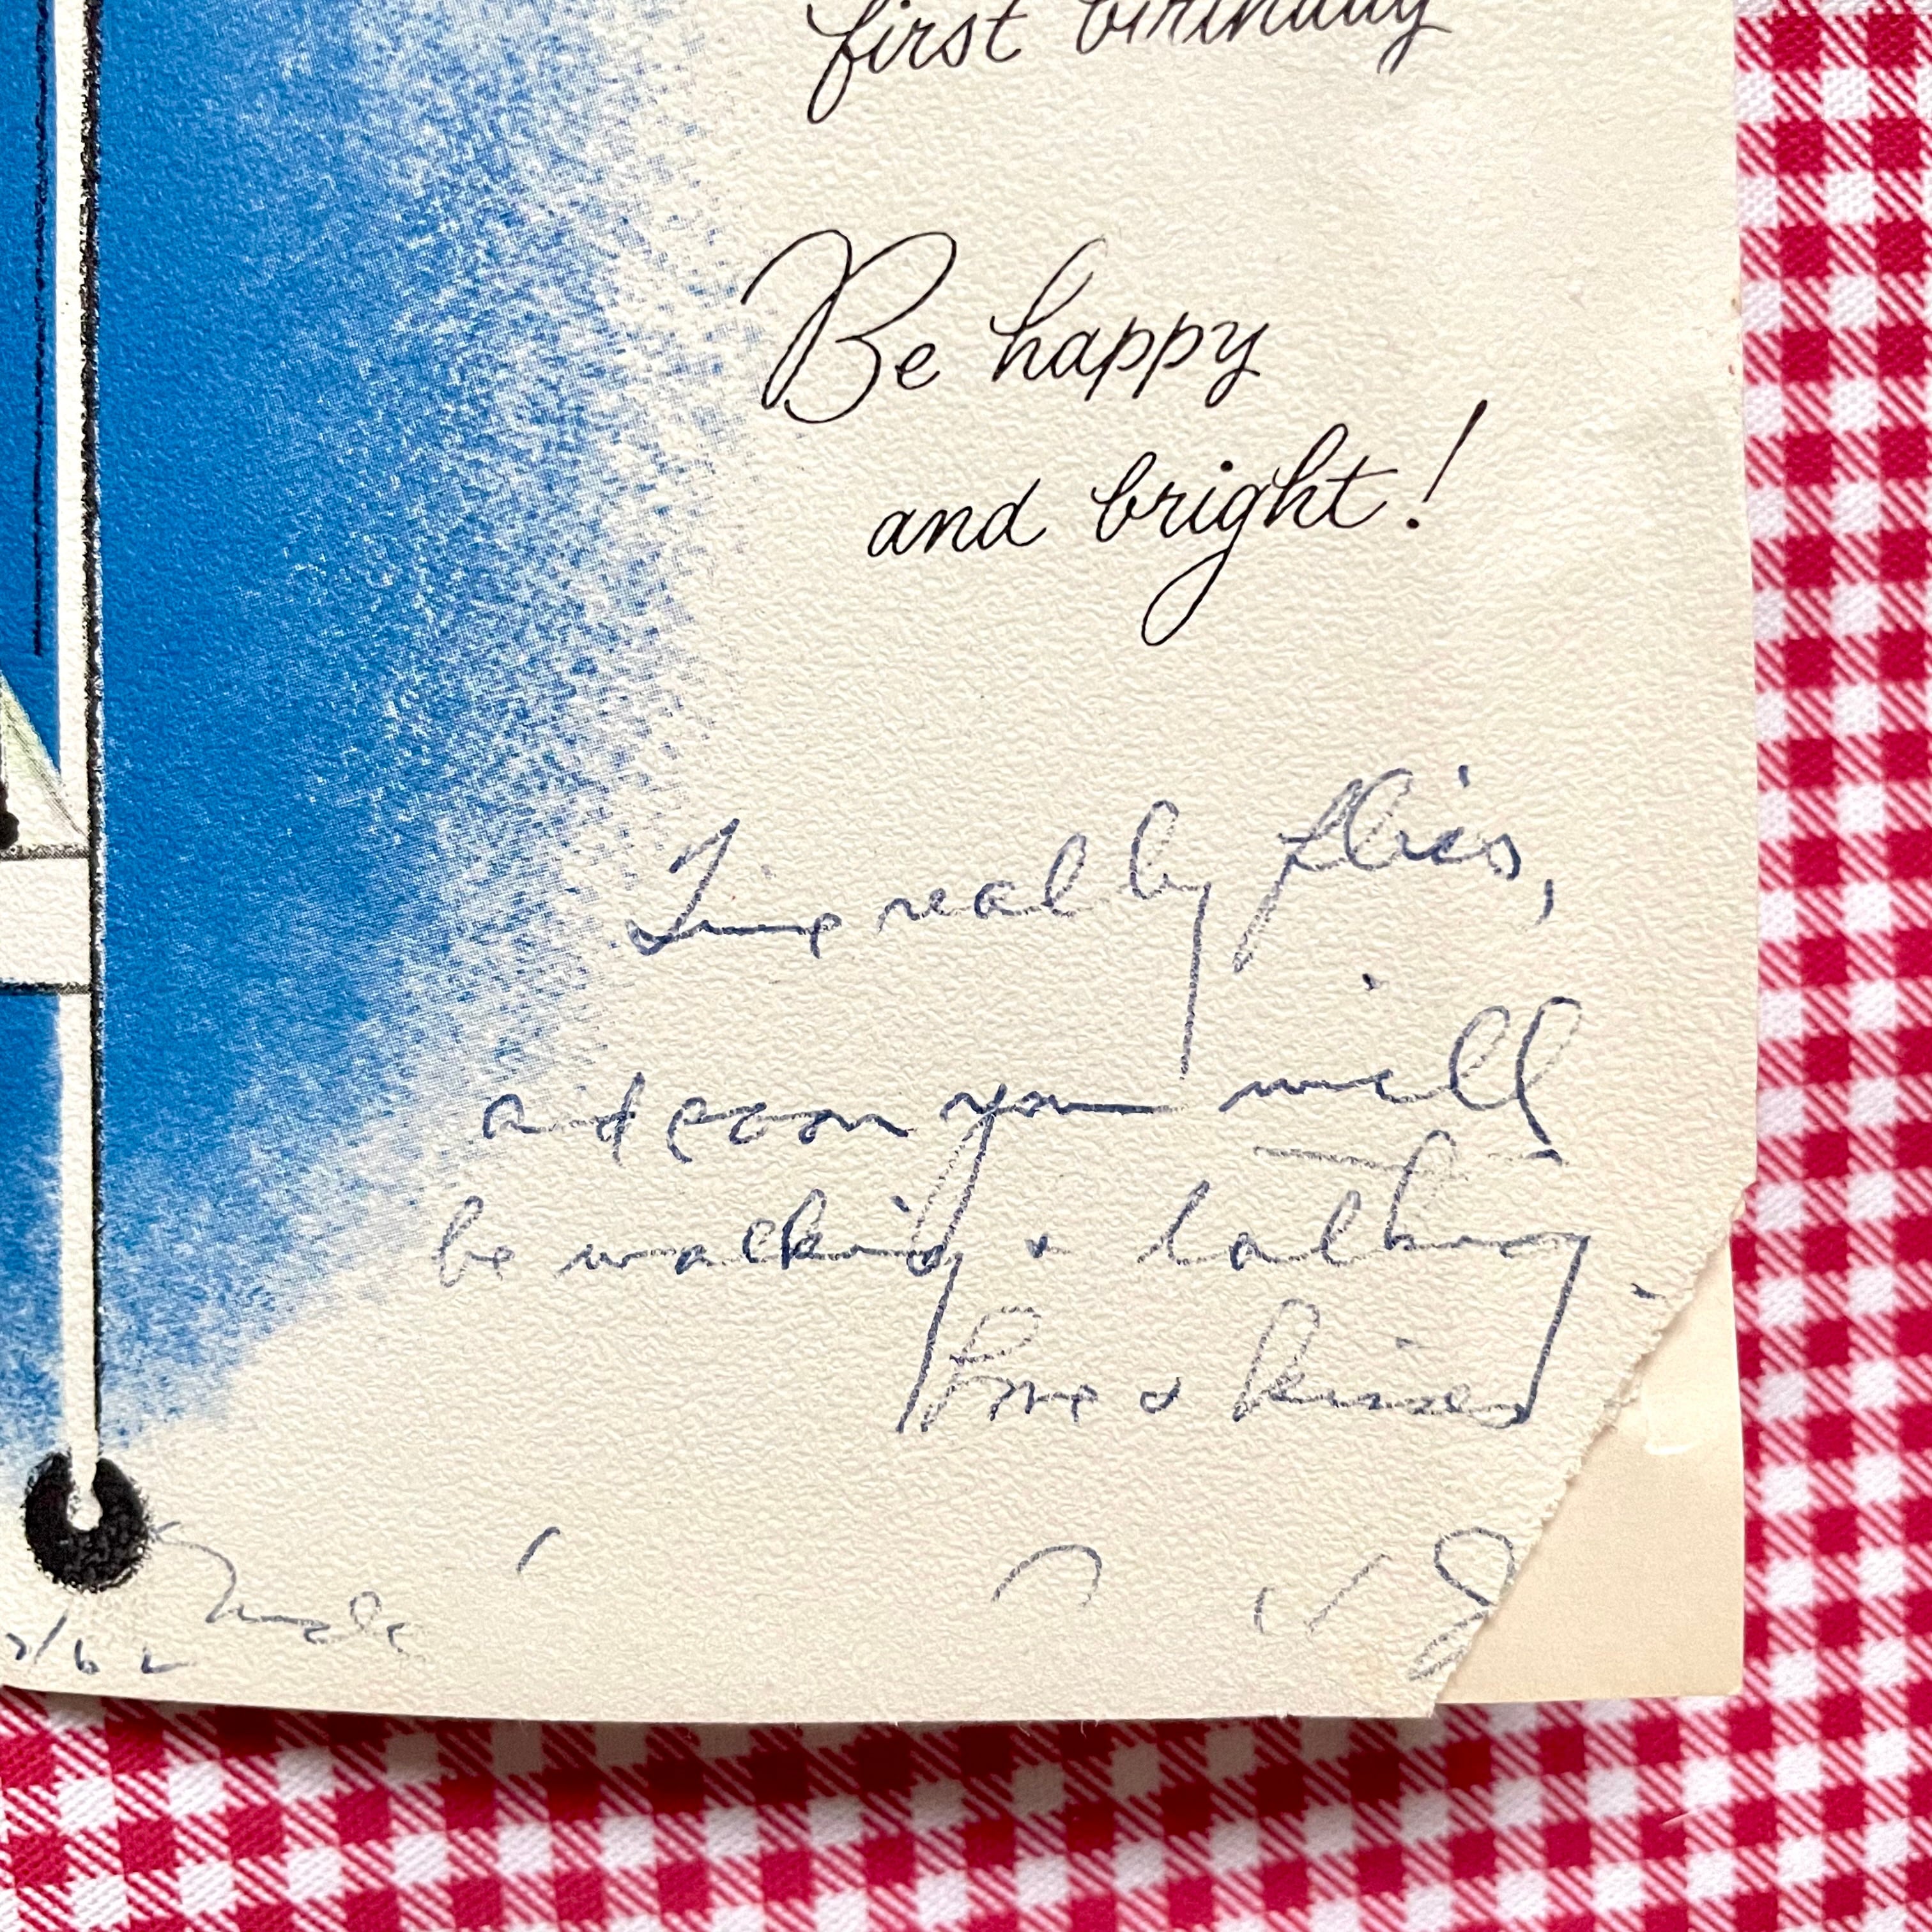 first birthday
Be happy
and bright!
Time really flies,
and soon you will
be walking & talking.
Love & kisses
/62